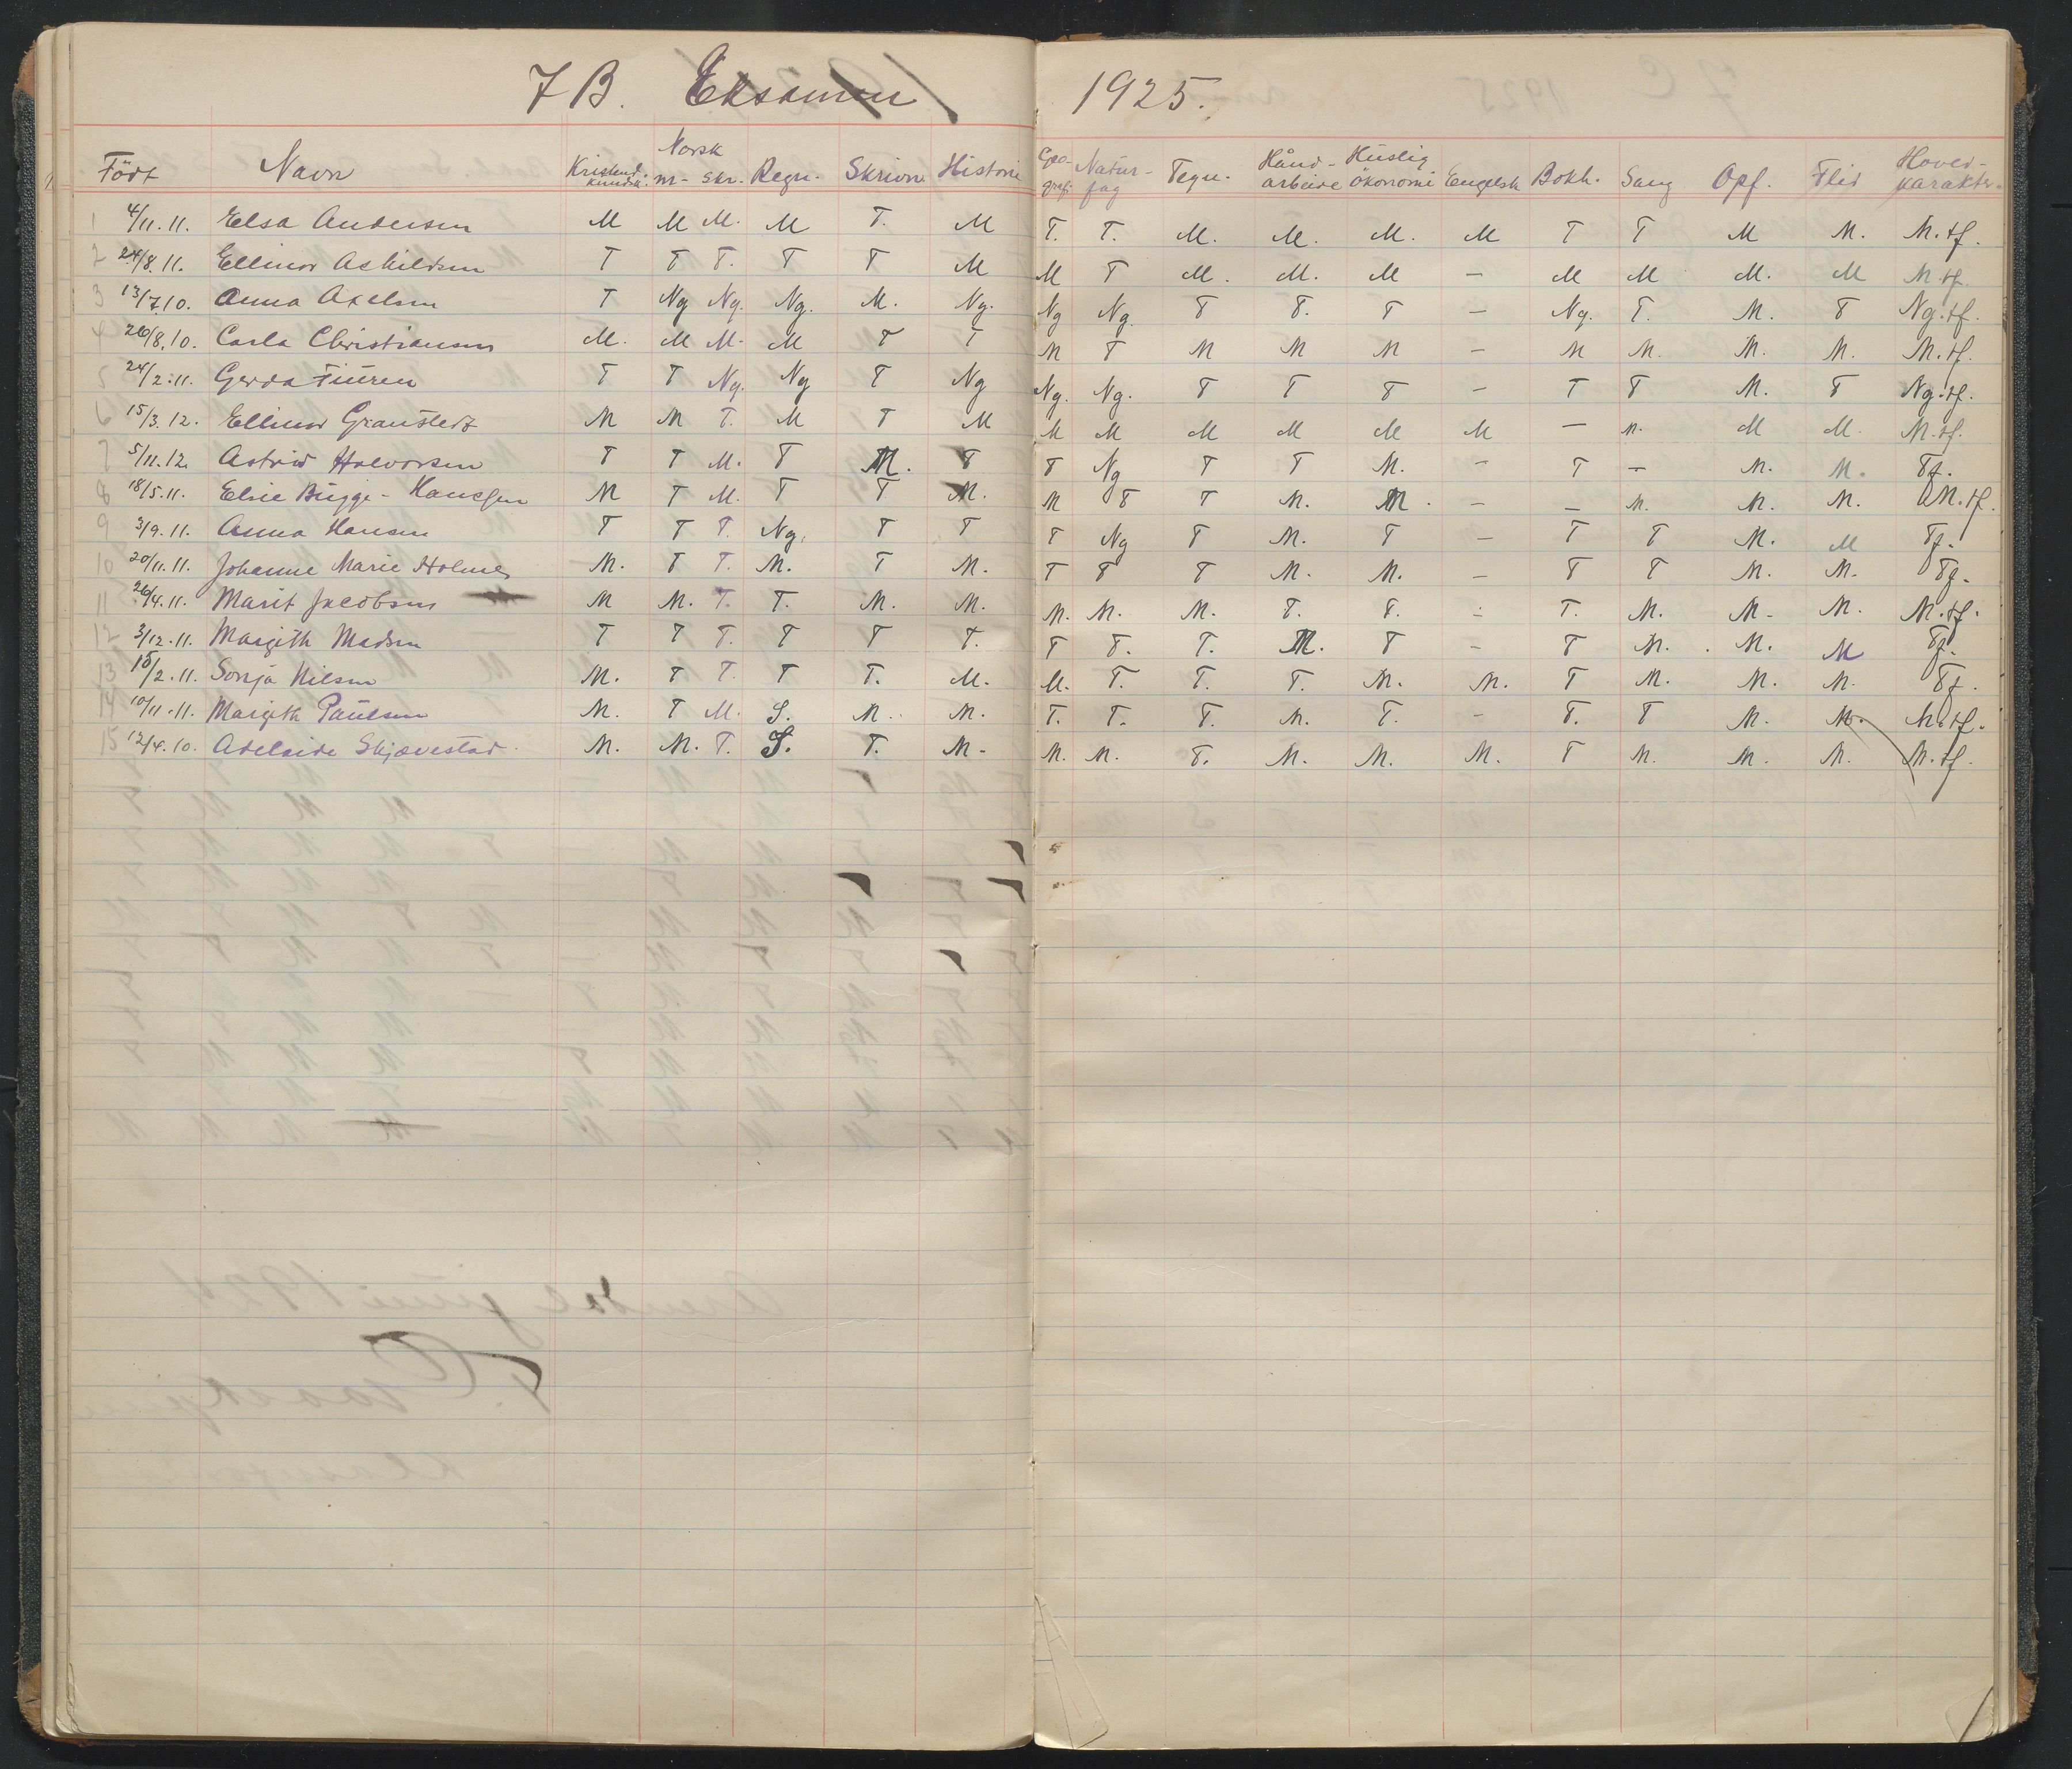 7 B. Eksamen 1925.
Födt Navn Kristend. kundsk. Norsk m- skr. Regn. Skrivn Historie Geo-grafi Natur-fag Tegn. Hånd-arbeide Huslig ökonomi Engelsk Bokh. Sang Opf. Flid Hoved-karakter.
1 4/11.11. Elsa Andersen M M M. M T. M T. T. M. M. M. M T T M M. M.tf.
2 24/8.11. Ellinor Askildsen T T T. T T M M T M. M. M — M M M. M M.tf.
3 13/7.10. Anna Axelsen T Ng Ng. Ng. M. Ng. Ng Ng. T T. T — Ng. T. M. T Ng.tf.
4 26/8.10. Carla Christiansen M. M M. M T T M T M M M — M M. M. M. M.tf.
5 24/2.11. Gerda T T Ng. Ng T Ng Ng. Ng. T T T — T T M. T Ng.tf.
6 15/3.12. Ellinor Granstedt M M T. M T M M M M M M M — M. M M. M.tf.
7 5/11.12. Astrid Halvorsen T T M. T M. T T Ng T T M. — T — M. M. Tf.
8 18/5.11. Elsie Bugge-Hanssen M T M. T T M. M T T M. M. — — M. M. M. M.tf.
9 3/9.11. Anna Hansen T T T. Ng. T T T Ng T M. T — T T M. M Tf.
10 20/11.11. Johanne Marie Holmen M. T T. M. T M. T T T M. M. — T T M. M. Tf.
11 26/4.11. Marit Jacobsen M M. T. T. M. M. M. M. M. T. T. — T. M. M. M. M.tf.
12 3/12.11. Margith Madsen T T T. T T T. T T. T. M. T — T M. M. M Tf.
13 /2.11. Sonja Nilsen M. T T. T T. M. M. T. T. T. M. M. T M. M. M. Tf.
14 10/11.11. Margith Paulsen M. T M. S. M. M. T. T. T. M. T. — T. T M. M. M.tf.
15 12/4.10. Adelaide Skjævestad. M. M. T. S. T. M. M. M. T. M. M. M. T M. M. M. M.tf.